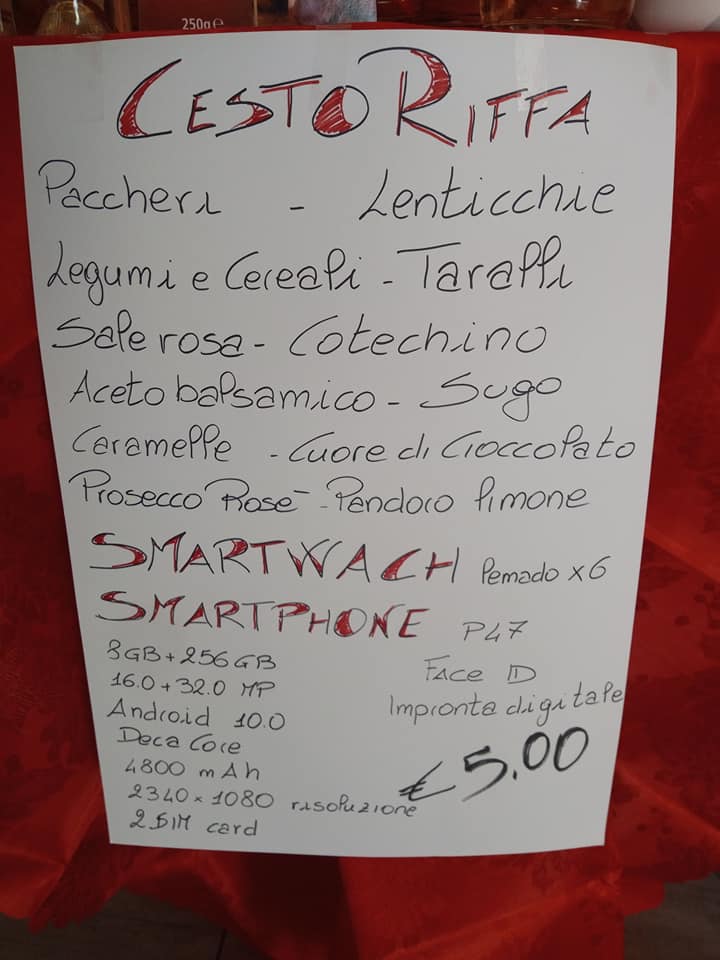 250g e
CESTO RIFFA
Paccheri - Lenticchie
Legumi e Cereali - Taralli
Sale rosa - Cotechino
Aceto balsamico - Sugo
Caramelle - Cuore di Cioccolato
Prosecco Rosè - Pandoro limone
SMARTWACH Pemado x6
SMARTPHONE P47
8GB + 256GB Face ID
16.0 + 32.0 MP Impronta digitale
Android 10.0
Deca Core € 5,00
4800 mAh
2340 x 1080 risoluzione
2 SIM card